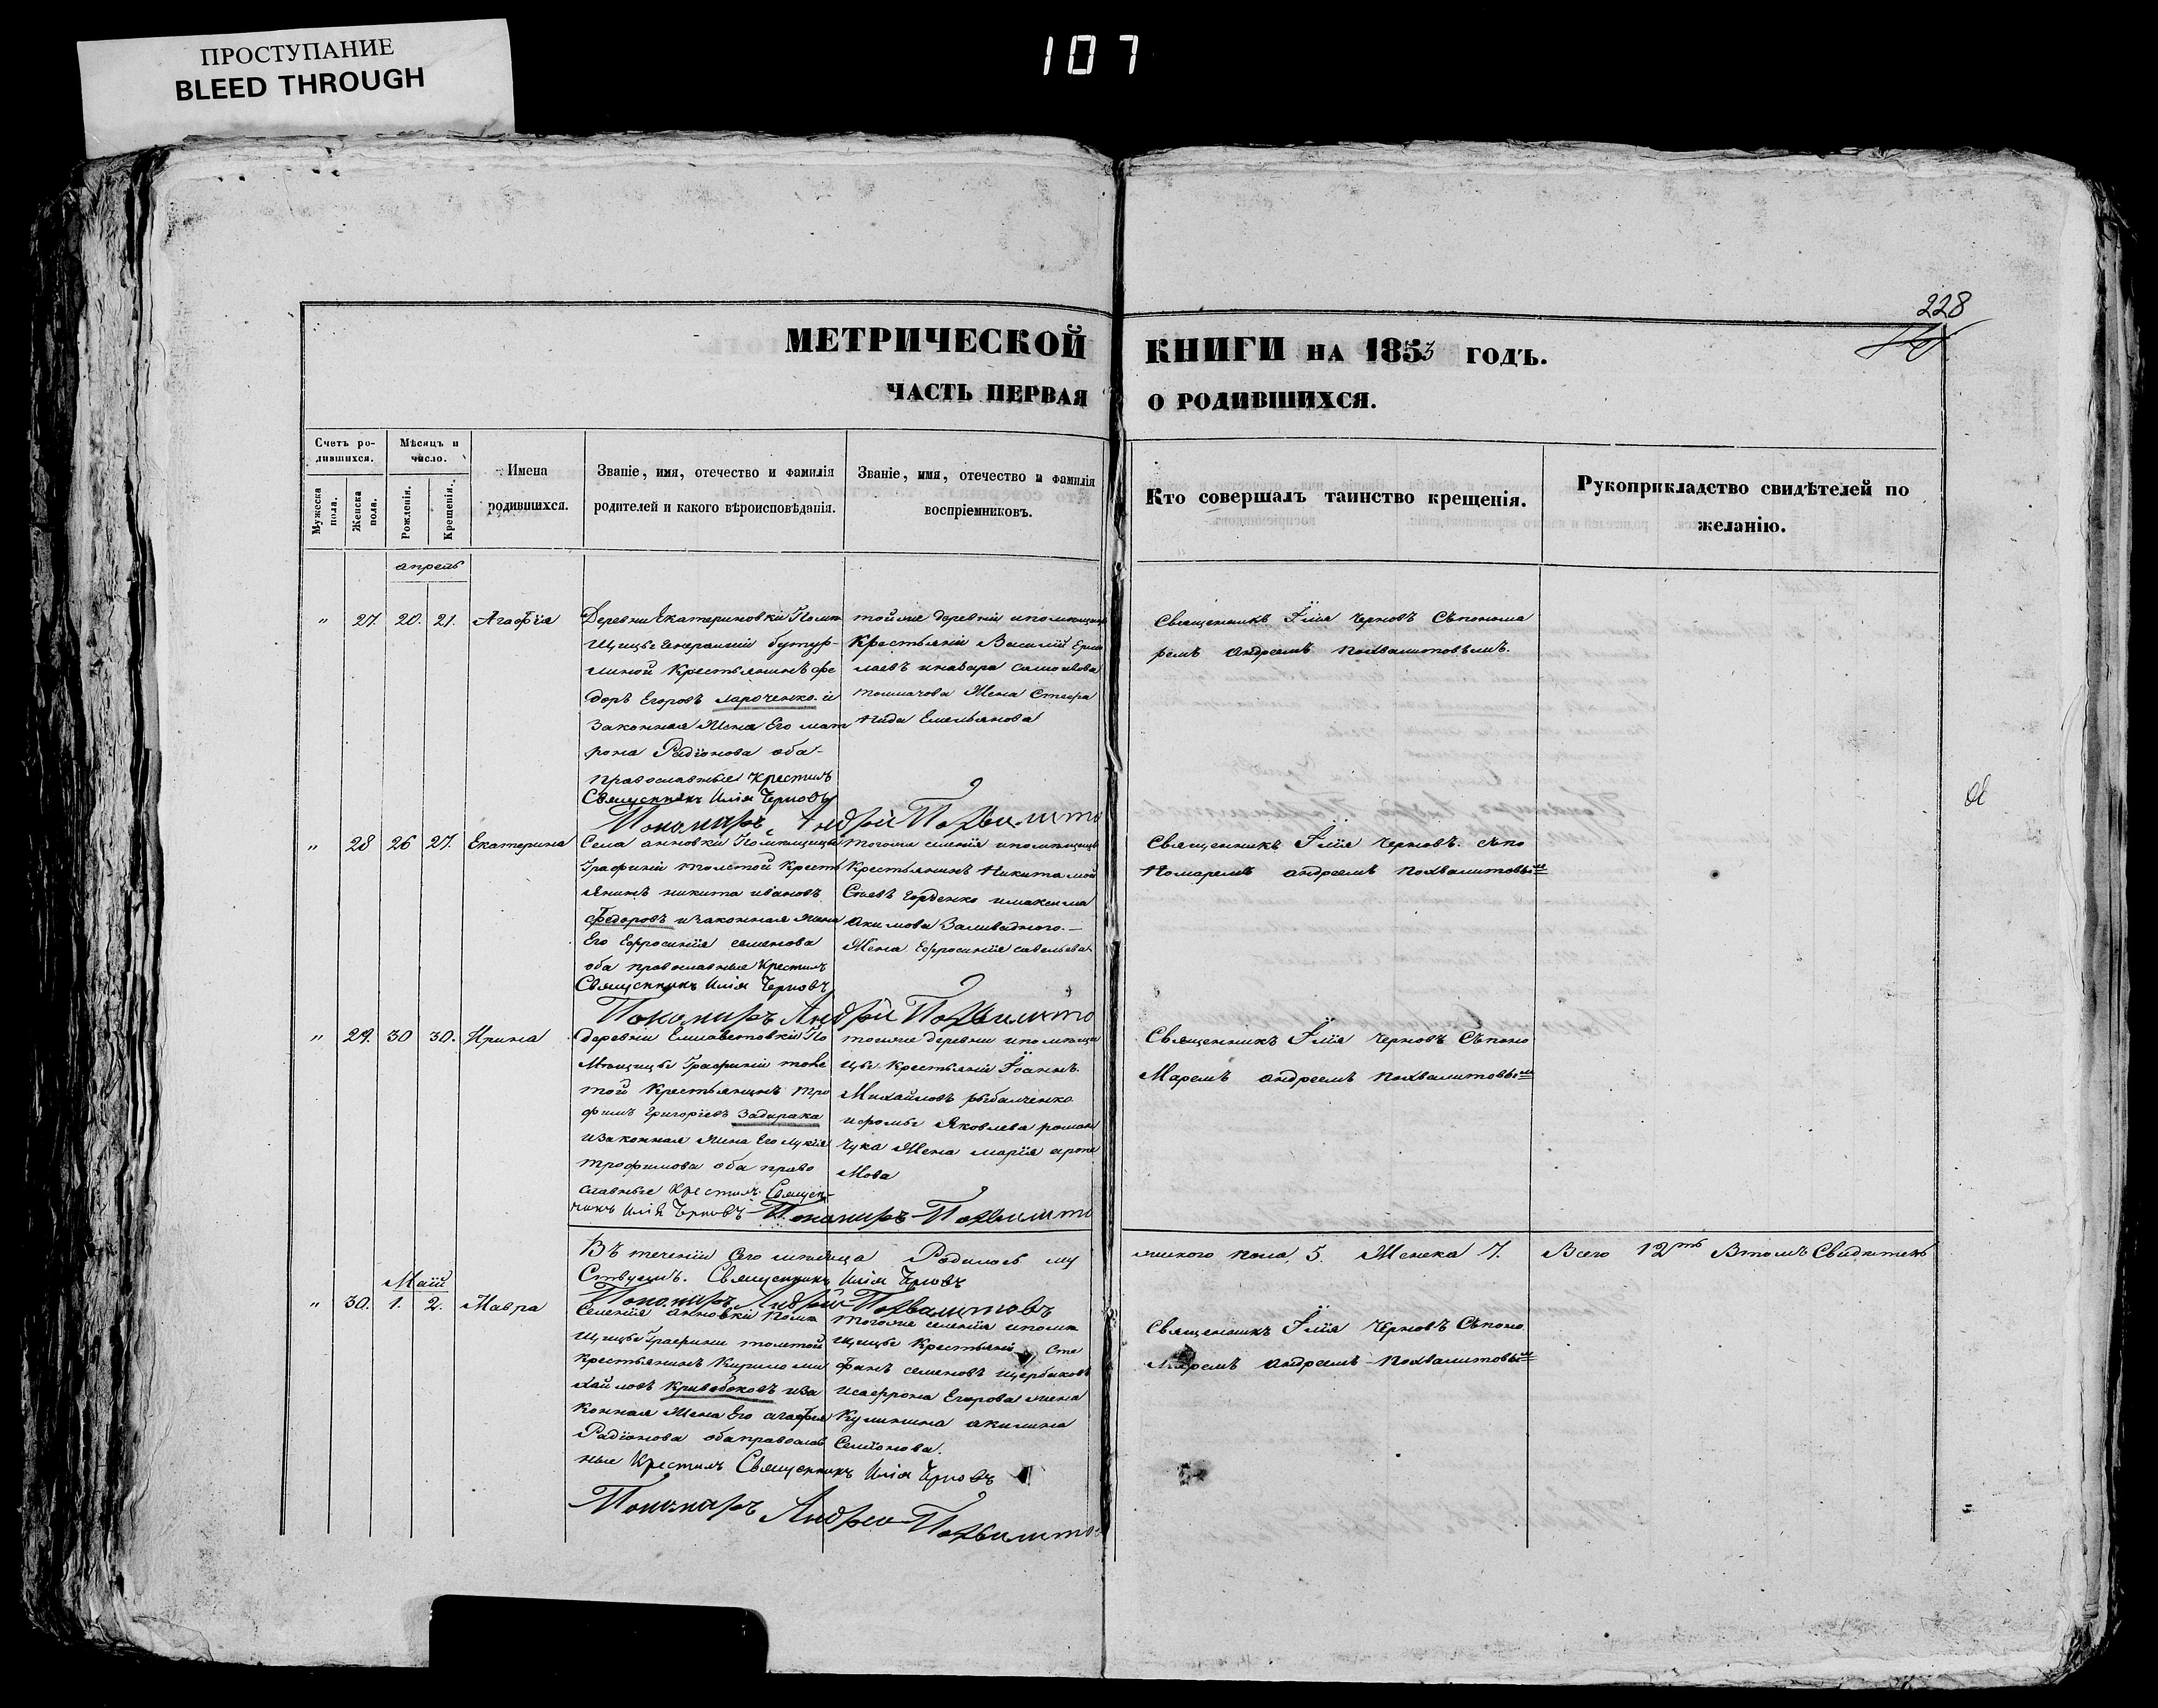 ПРОСТУПАНИЕ
BLEED THROUGH
107
228
МЕТРИЧЕСКОЙ КНИГИ НА 1853 ГОДЪ.
ЧАСТЬ ПЕРВАЯ О РОДИВШИХСЯ.
Счетъ ро-
дившихся.
Мужеска
пола.
Женска
пола.
Мѣсяцъ и
число.
Рожденія.
Крещенія.
Имена
родившихся.
Званіе, имя, отечество и фамилія
родителей и какого вѣроисповѣданія.
Званіе, имя, отечество и фамилія
воспріемниковъ.
Кто совершалъ таинство крещенія.
Рукоприкладство свидѣтелей по
желанію.
апрель
" 27. 20. 21. Агафія
Деревни Екатериновки Помѣ
щицы Генеральши бутур-
линой Крестьянинъ фе
доръ Егоровъ и
Законная Жена Его мат
рона Радіонова оба
православные Крестилъ
Священникъ Илія Черновъ
той же деревни
Крестьяни Василій Ермо
лаевъ
Жена Стефа
нида Емельянова
Священникъ Илія Черновъ Съ понома
ремъ Андреемъ Похвалитовымъ.
Пономарь Андрей Похвалито
" 28 26 27. Екатерина
Села анновки Помѣщицы
Графини толстой Кресть
янинъ никита ивановъ
федоровъ и законная жена
Его Ефросинія семенова
оба православные Крестилъ
Священникъ Илія Черновъ
тогоже селенія
Крестьянинъ Никита мои
сѣевъ Горденко
акимова Заливадного.
Жена Ефросинія савельева
Священникъ Илія Черновъ. съ по
номаремъ андреемъ похвалитовымъ
Пономарь Андрей Похвалито
" 29. 30 30. Ирина
деревни Елисаветовки По
мѣщицы Графини толс
той Крестьянинъ тро
фимъ Григоріевъ Задирака
и законная жена Его лукія
трофимова оба право
славные Крестилъ Священ
никъ Илія Черновъ
тойже деревни
цы Крестьяни Іоаннъ
Михайловъ рыбалченко
Яковлева роман
чука Жена марія
мова
Священникъ Илія Черновъ Съ поно
маремъ андреемъ похвалитовымъ
Пономарь Похвалито
Въ теченіи Сего мѣсяца Родилось му
жеского пола, 5. Женска 7. Всего 12ть В томъ Свидитель
Ствуемъ. Священникъ Илія Черновъ
Пономарь Андрей Похвалитовъ
Маій
" 30. 1. 2. Мавра
Селенія анновки помѣ
щицы Графини толстой
крестьянинъ Кирило ми
хайловъ Кривобоковъ и за
конная Жена Его агафія
Радіонова оба православ
ные Крестилъ Священникъ Илія Черновъ
тогоже селенія и помѣ
щицы Крестьяни Сте
фанъ семеновъ щербаковъ
Егорова жена
Кулинина акилина
Семіонова.
Священникъ Илія Черновъ Съ поно
маремъ андреемъ похвалитовымъ
Пономарь Андрей Похвалито